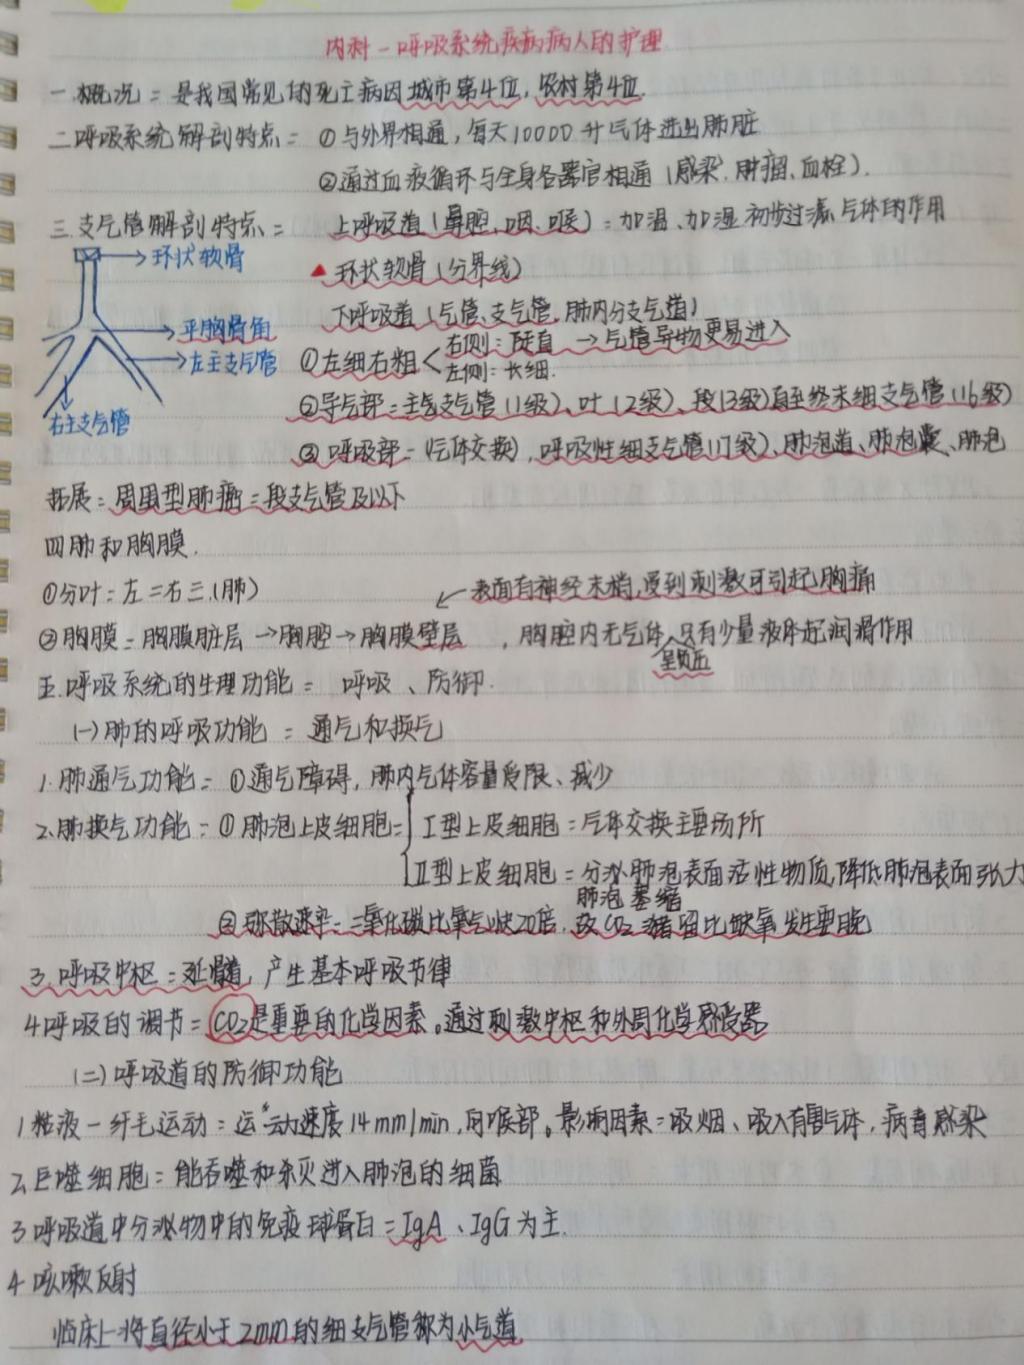 内科-呼吸系统疾病病人的护理
一.概况=是我国常见的死亡病因城市第4位,农村第4位.
二.呼吸系统解剖特点=①与外界相通,每天10000升气体进出肺脏
②通过血液循环与全身各器官相通(感染.肿瘤、血栓).
三.支气管解剖特点=上呼吸道(鼻腔.咽.喉)=加温、加湿初步过滤气体的作用
环状软骨
▲环状软骨(分界线)
下呼吸道(气管、支气管.肺内分支气道)
平胸骨角
左主支气管
右主支气管
①左细右粗<右侧:陡直→气管异物更易进入
左侧:长细.
②导气部=主支气管(1级)、叶(2级)、段(3级)直至终末细支气管(16级)
③呼吸部=(气体交换),呼吸性细支气管(17级)、肺泡道、肺泡囊、肺泡
拓展=周围型肺癌=段支气管及以下
四.肺和胸膜.
①分叶:左二右三.(肺)
表面有神经末梢,受到刺激可引起胸痛
②胸膜=胸膜脏层→胸腔→胸膜壁层,胸腔内无气体,只有少量液体起润滑作用
呈负压
五.呼吸系统的生理功能=呼吸、防御.
(一)肺的呼吸功能=通气和换气
1.肺通气功能=①通气障碍,肺内气体容量受限、减少
2.肺换气功能=①肺泡上皮细胞=Ⅰ型上皮细胞=气体交换主要场所
Ⅱ型上皮细胞=分泌肺泡表面活性物质,降低肺泡表面张力
肺泡萎缩
②弥散速率=二氧化碳比氧气快20倍,故CO2潴留比缺氧发生要晚
3.呼吸中枢=延髓,产生基本呼吸节律
4.呼吸的调节=CO2是重要的化学因素。通过刺激中枢和外周化学感受器
(二)呼吸道的防御功能
1粘液-纤毛运动=运动速度14mm/min,向喉部。影响因素=吸烟、吸入有害气体,病毒感染
2.巨噬细胞=能吞噬和杀灭进入肺泡的细菌
3呼吸道中分泌物中的免疫球蛋白=IgA、IgG为主.
4.咳嗽反射
临床上将直径小于2mm的细支气管称为小气道.